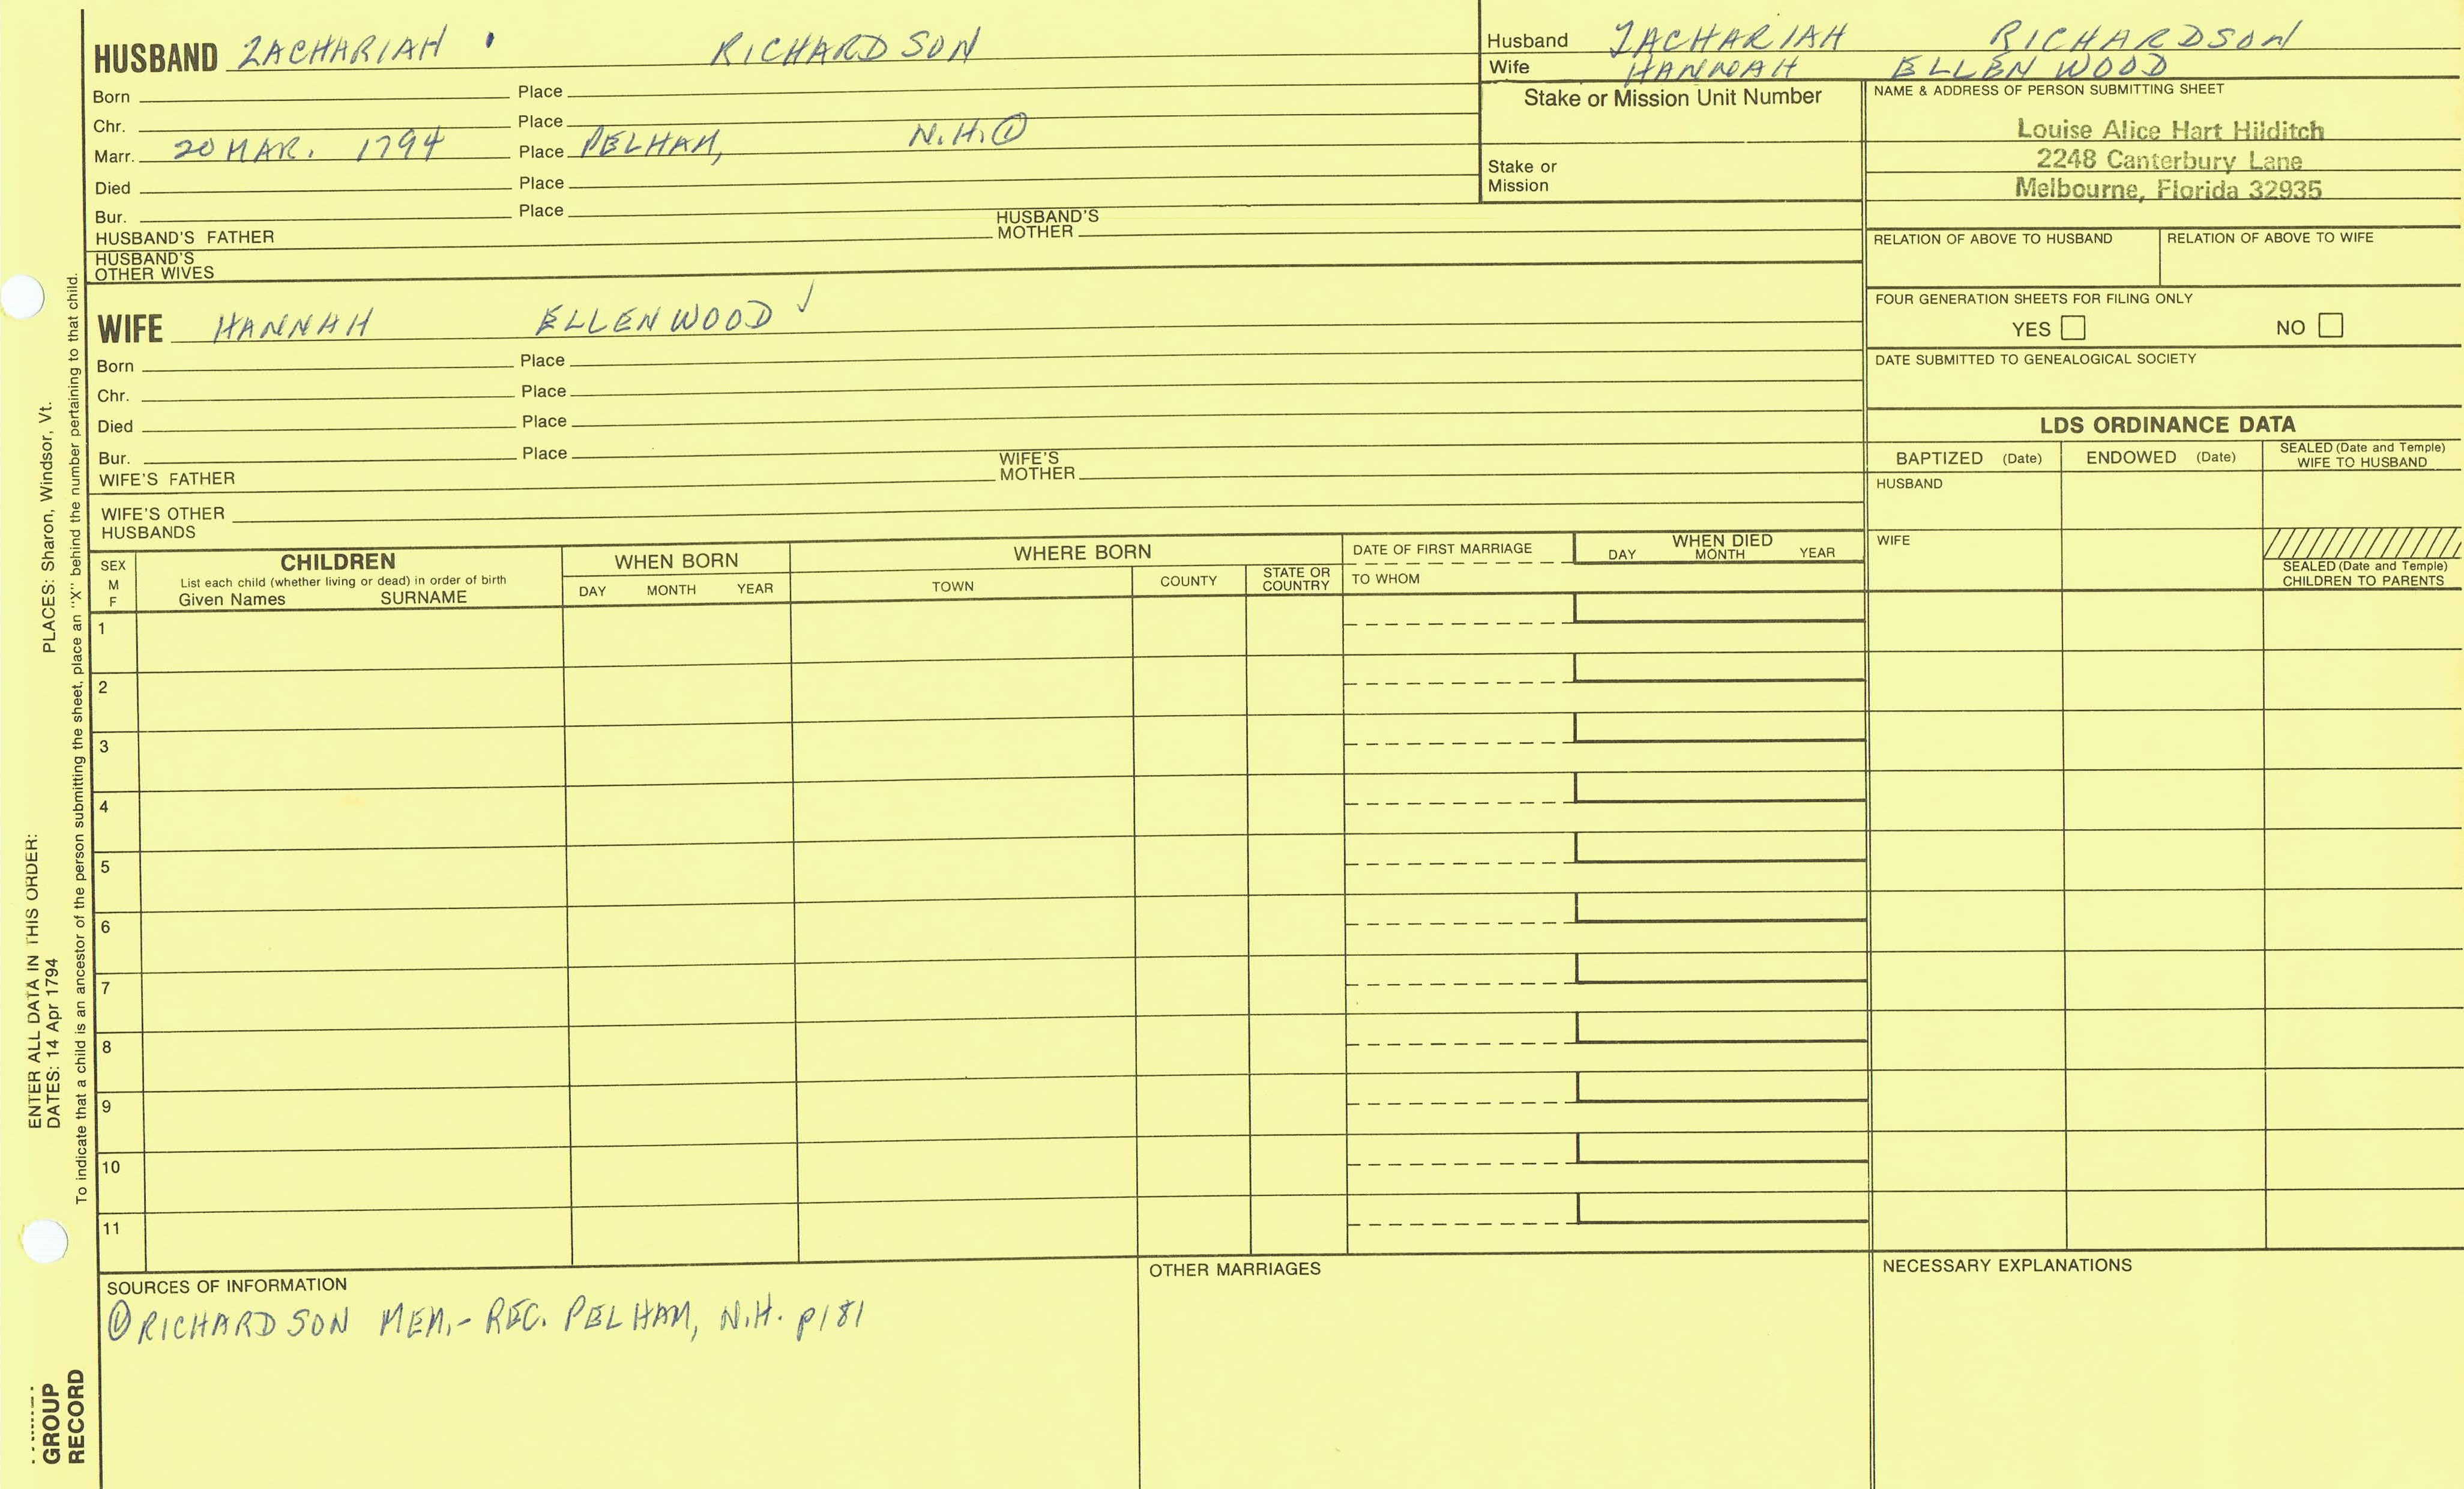 HUSBAND ZACHARIAH RICHARDSON
Born Place
Chr. Place
Marr. 20 MAR. 1794 Place PELHAM, N.H.①
Died Place
Bur. Place
HUSBAND'S FATHER HUSBAND'S MOTHER
HUSBAND'S OTHER WIVES
WIFE HANNAH ELLENWOOD ✓
Born Place
Chr. Place
Died Place
Bur. Place
WIFE'S FATHER WIFE'S MOTHER
WIFE'S OTHER HUSBANDS
Husband ZACHARIAH RICHARDSON
Wife HANNAH ELLENWOOD
Stake or Mission Unit Number
Stake or
Mission
NAME & ADDRESS OF PERSON SUBMITTING SHEET
Louise Alice Hart Hilditch
2248 Canterbury Lane
Melbourne, Florida 32935
RELATION OF ABOVE TO HUSBAND RELATION OF ABOVE TO WIFE
FOUR GENERATION SHEETS FOR FILING ONLY
YES NO
DATE SUBMITTED TO GENEALOGICAL SOCIETY
LDS ORDINANCE DATA
BAPTIZED (Date) ENDOWED (Date) SEALED (Date and Temple) WIFE TO HUSBAND
HUSBAND
WIFE
SEALED (Date and Temple)
CHILDREN TO PARENTS
SEX
M
F
CHILDREN
List each child (whether living or dead) in order of birth
Given Names SURNAME
WHEN BORN
DAY MONTH YEAR
WHERE BORN
TOWN COUNTY STATE OR COUNTRY
DATE OF FIRST MARRIAGE
TO WHOM
WHEN DIED
DAY MONTH YEAR
1
2
3
4
5
6
7
8
9
10
11
SOURCES OF INFORMATION
① RICHARDSON MEM.- REC. PELHAM, N.H. p181
OTHER MARRIAGES
NECESSARY EXPLANATIONS
ENTER ALL DATA IN THIS ORDER:
DATES: 14 Apr 1794 PLACES: Sharon, Windsor, Vt.
To indicate that a child is an ancestor of the person submitting the sheet, place an "X" behind the number pertaining to that child.
GROUP
RECORD